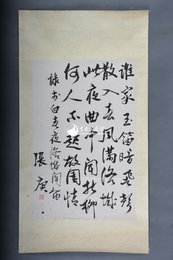 谁家玉笛暗飞声
散入春风满洛城
此夜曲中闻折柳
何人不起故园情
录李白春夜洛城闻笛
张庚